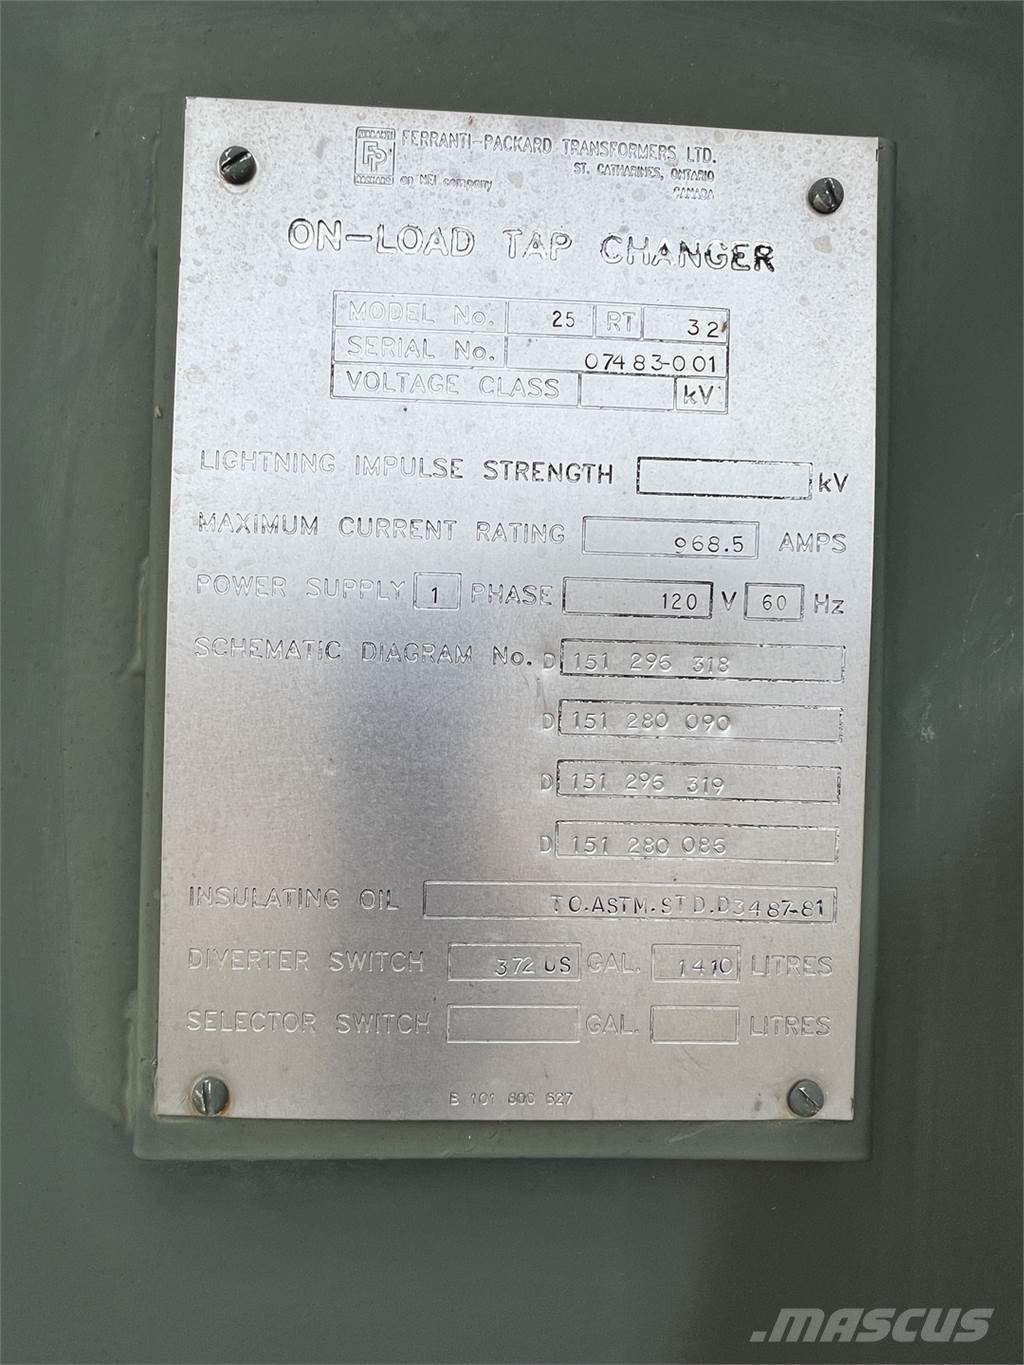 FERRANTI PACKARD
FP
FERRANTI-PACKARD TRANSFORMERS LTD.
ST. CATHARINES, ONTARIO
an NEI company
CANADA
ON-LOAD TAP CHANGER
MODEL No. 25 RT 32
SERIAL No. 07483-001
VOLTAGE CLASS kV
LIGHTNING IMPULSE STRENGTH kV
MAXIMUM CURRENT RATING 968.5 AMPS
POWER SUPPLY 1 PHASE 120 V 60 Hz
SCHEMATIC DIAGRAM No. D 151 296 318
D 151 280 090
D 151 296 319
D 151 280 086
INSULATING OIL TO.ASTM.STD.D3487-81
DIVERTER SWITCH 372 US GAL. 1410 LITRES
SELECTOR SWITCH GAL. LITRES
B 101 800 527
.MASCUS